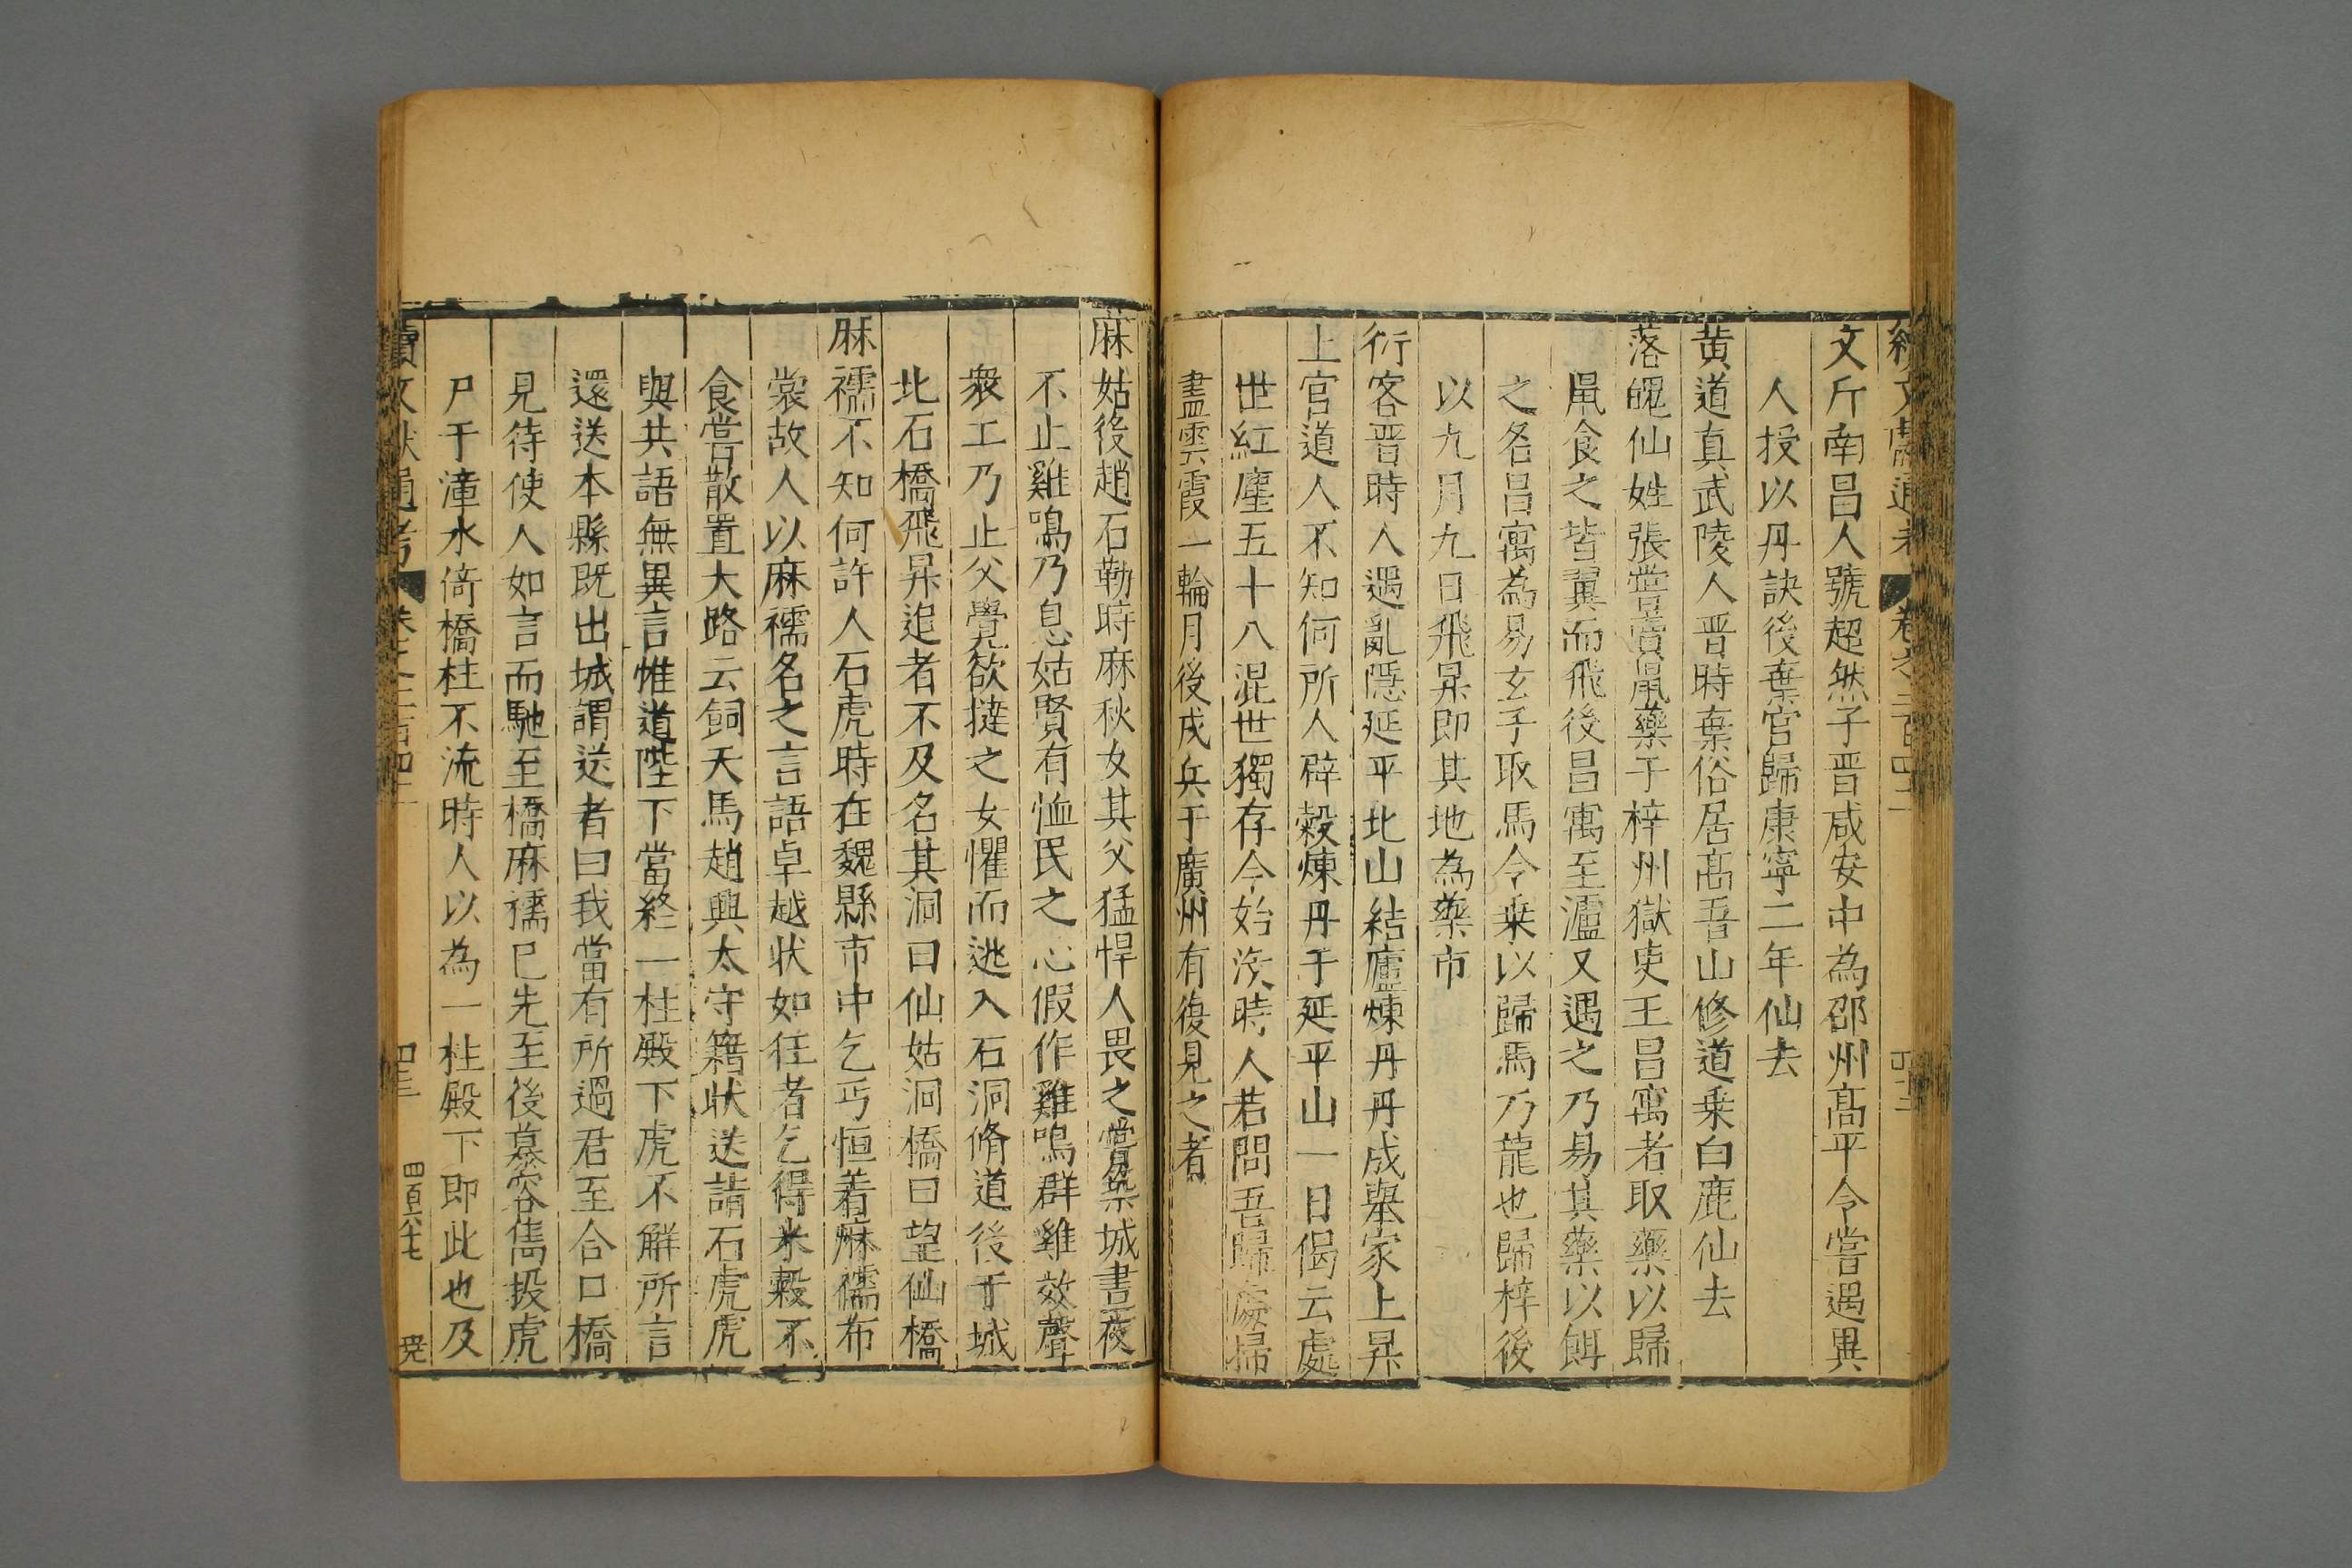 續文獻通考 卷之二百四十二 四十二
文斤南昌人號超然子晋咸安中為邵州髙平令嘗遇異
人授以丹訣後棄官歸康寧二年仙去
黄道真武陵人晋時棄俗居髙吾山修道乗白鹿仙去
落魄仙姓張嘗賣鼠藥于梓州獄吏王昌寓者取藥以歸
鼠食之皆翼而飛後昌寓至瀘又遇之乃易其藥以餌
之名昌寓為易玄子取馬令乗以歸馬乃龍也歸梓後
以九月九日飛昇即其地為藥市
衍客晋時人遇亂隱延平北山結廬煉丹丹成舉家上昇
上官道人不知何所人辟榖煉丹于延平山一日偈云處
世紅塵五十八混世獨存今始決時人若問吾歸處掃
盡雲霞一輪月後戍兵于廣州有復見之者
麻姑後趙石勒時麻秋女其父猛悍人畏之嘗築城晝夜
不止雞鳴乃息姑賢有恤民之心假作雞鳴群雞效聲
衆工乃止父覺欲撻之女懼而逃入石洞脩道後于城
北石橋飛昇追者不及名其洞曰仙姑洞橋曰望仙橋
麻襦不知何許人石虎時在魏縣市中乞丐恒着麻襦布
裳故人以麻襦名之言語卓越状如狂者乞得米穀不
食嘗散置大路云飼天馬趙興太守籍状送請石虎虎
與共語無異言惟道陛下當終一柱殿下虎不解所言
還送本縣既出城謂送者曰我當有所過君至合口橋
見待使人如言而馳至橋麻襦巳先至後慕容雋投虎
尸于漳水倚橋柱不流時人以為一柱殿下即此也及
續文獻通考 卷之二百四十二 四十三